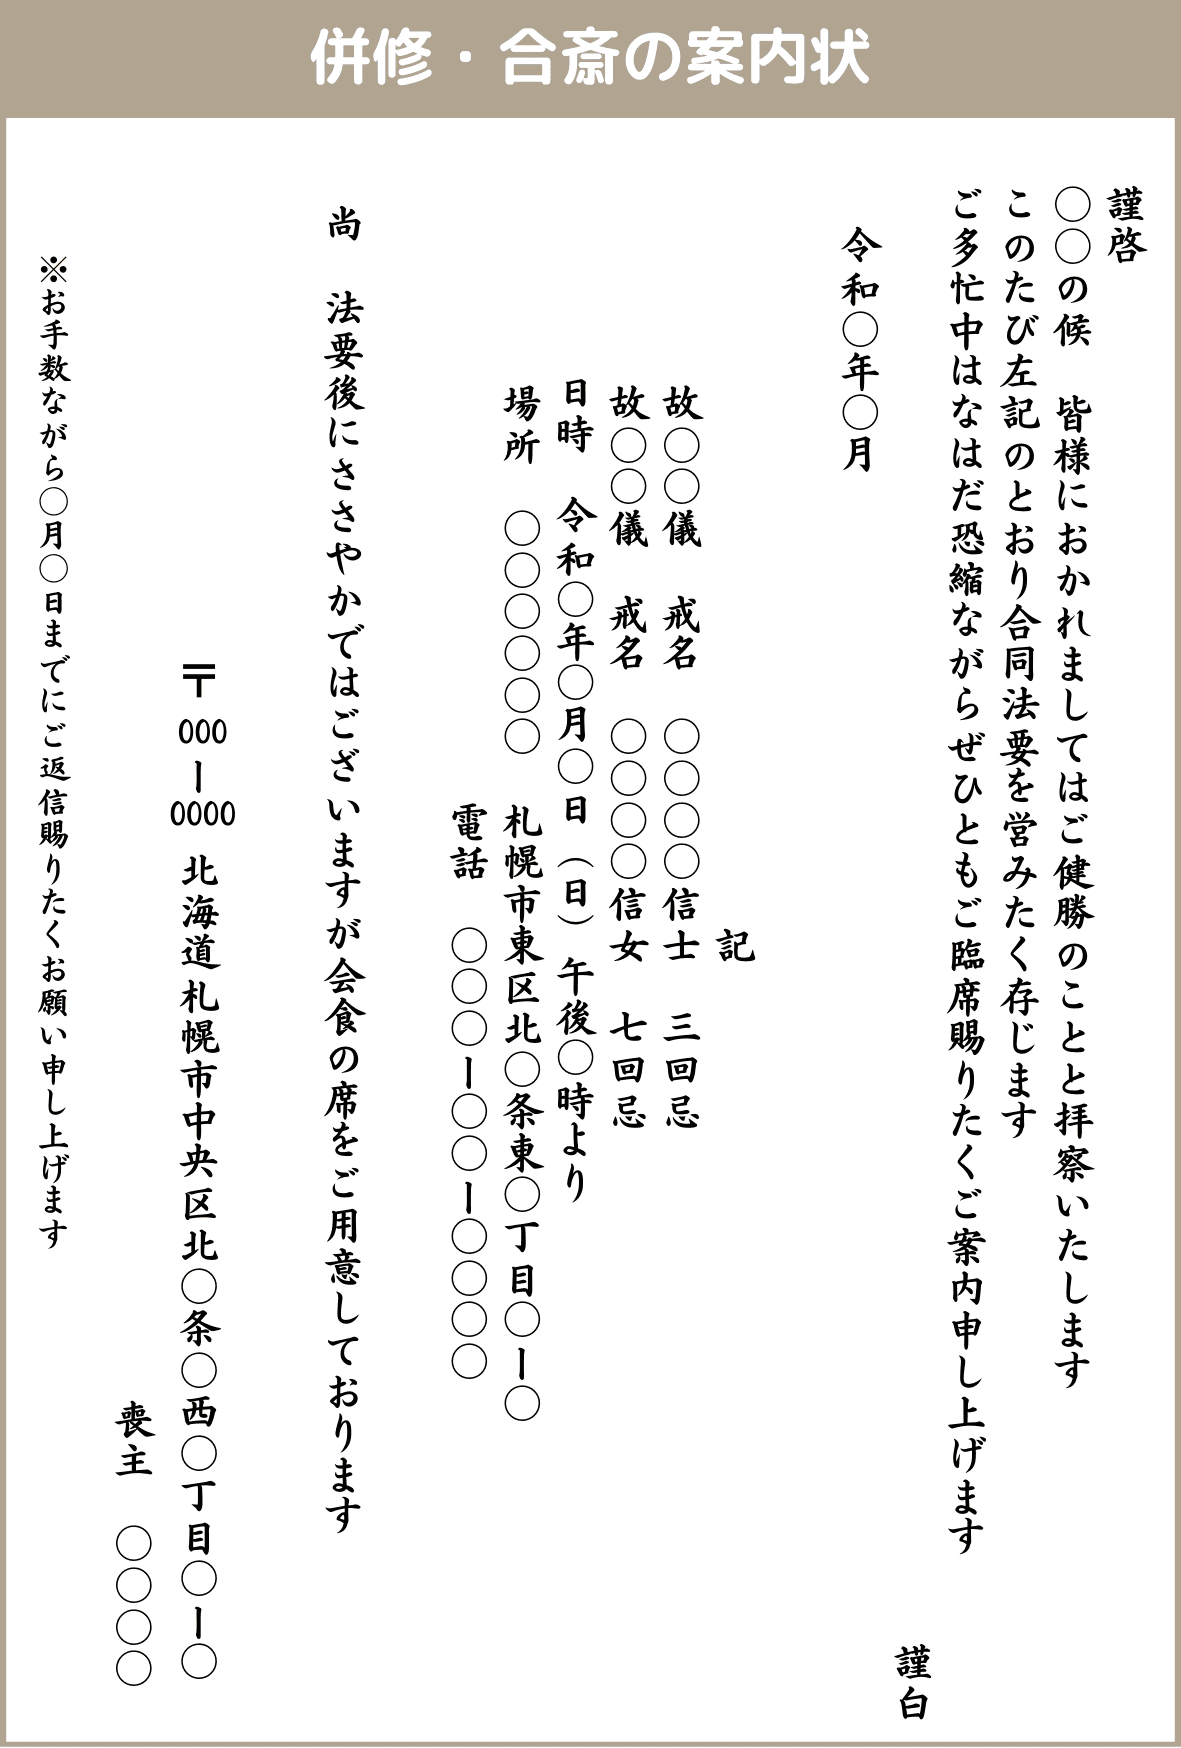 併修・合斎の案内状
謹啓
〇〇の候　皆様におかれましてはご健勝のことと拝察いたします
このたび左記のとおり合同法要を営みたく存じます
ご多忙中はなはだ恐縮ながらぜひともご臨席賜りたくご案内申し上げます
謹白
令和〇年〇月
記
故〇〇儀　戒名　〇〇〇〇信士　三回忌
故〇〇儀　戒名　〇〇〇〇信女　七回忌
日時　令和〇年〇月〇日（日）午後〇時より
場所　〇〇〇〇〇〇　札幌市東区北〇条東〇丁目〇ー〇
電話　〇〇〇ー〇〇ー〇〇〇〇
尚　法要後にささやかではございますが会食の席をご用意しております
〒000ー0000 北海道札幌市中央区北〇条〇西〇丁目〇ー〇
喪主　〇〇〇〇
※お手数ながら〇月〇日までにご返信賜りたくお願い申し上げます